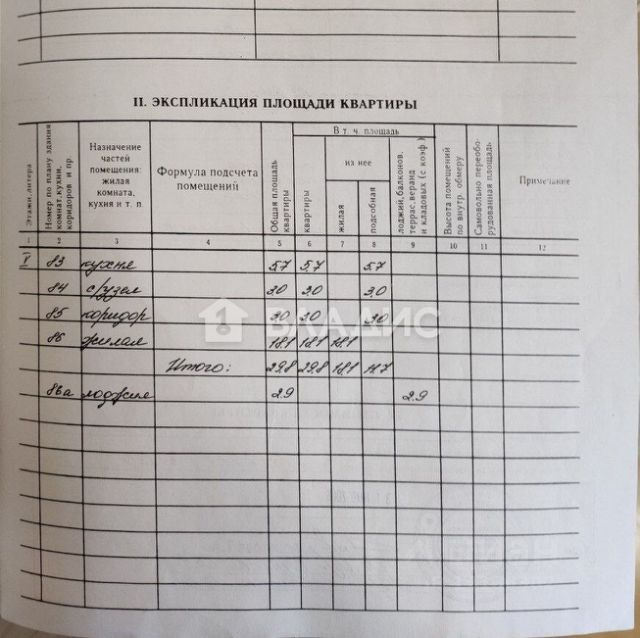 II. ЭКСПЛИКАЦИЯ ПЛОЩАДИ КВАРТИРЫ
Этажи, литера
Номер по плану здания комнат, кухни, коридоров и пр.
Назначение частей помещения: жилая комната, кухня и т. п.
Формула подсчета помещений
Общая площадь квартиры
В т. ч. площадь
квартиры
из нее
жилая
подсобная
лоджий, балконов, террас, веранд и кладовых (с коэф.)
Высота помещений по внутр. обмеру
Самовольно переоборудованная площадь
Примечание
1 2 3 4 5 6 7 8 9 10 11 12
V 83 кухня 5,7 5,7 5,7
84 с/узел 3,0 3,0 3,0
85 коридор 3,0 3,0 3,0
86 жилая 18,1 18,1 18,1
Итого: 29,8 29,8 18,1 11,7
86а лоджия 2,9 2,9
ВЛАДИС